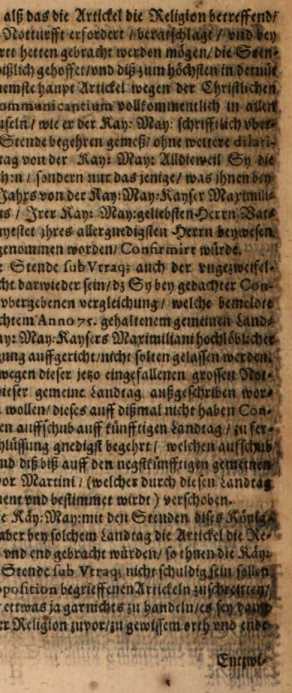 alß das die Artickel die Religion betreffend/
Notturfft erfordert / beratschlagt / vnd bey
rt hetten gebracht werden mögen / die Sten-
ißlich gehoffet / vnd diß zum höchsten in demut
nemste haupt Artickel wegen der Christlichen
ommunicantium vollkommentlich in allen
useln / wie er der Kay: May: schrifftlich vber-
Stende begehren gemeß / ohne weitere dilati-
tag von der Kay: May: Alldieweil Sy die
h:n / sondern nur das jenige / was jhnen bey
Jahrs von der Kay: May: Kayser Maximili-
ts / Jrer Kay: May: geliebsten Herrn Vat-
yestet jhres allergnedigsten Herrn beywesen
genommen worden / Confirmirt würde.
Stende sub Vtraq; auch der vngezweifel-
cht darwieder sein / dz Sy bey gedachter Con-
vbergebenen vergleichung / welche bemelte
chtem Anno 75. gehaltenem gemeinen Land-
ay: May: Kaysers Maximiliani hochlöblicher
gung auffgericht / nicht solten gelassen werden.
wegen dieser jetzo eingefallenen grossen Not-
ieser gemeine Landtag außgeschrieben wor-
wollen / dieses auff dißmal nicht haben Con-
en auffschub auff künfftigen Landtag / zu ter-
chlüssung gnedigst begehrt / welchen auffschub
nd diß biß auff den negstkünfftigen gemeinen
or Martini / (welcher durch diesen Landtag
nent vnd bestimmet wirdt) verschoben.
e Kay: May: mit den Stenden dises Königs
aber bey solchem Landtag die Artickel die Re-
vnd end gebracht würden / so jhnen die Kay:
Stende sub Vtraq; nicht schuldig sein sollen
oposition begrieffenen Artickeln zuschreitten/
ettwas ja gar nichts zu handeln / es sey dann
er Religion zuvor / zu gewissem orth vnd ende
Entzwi-